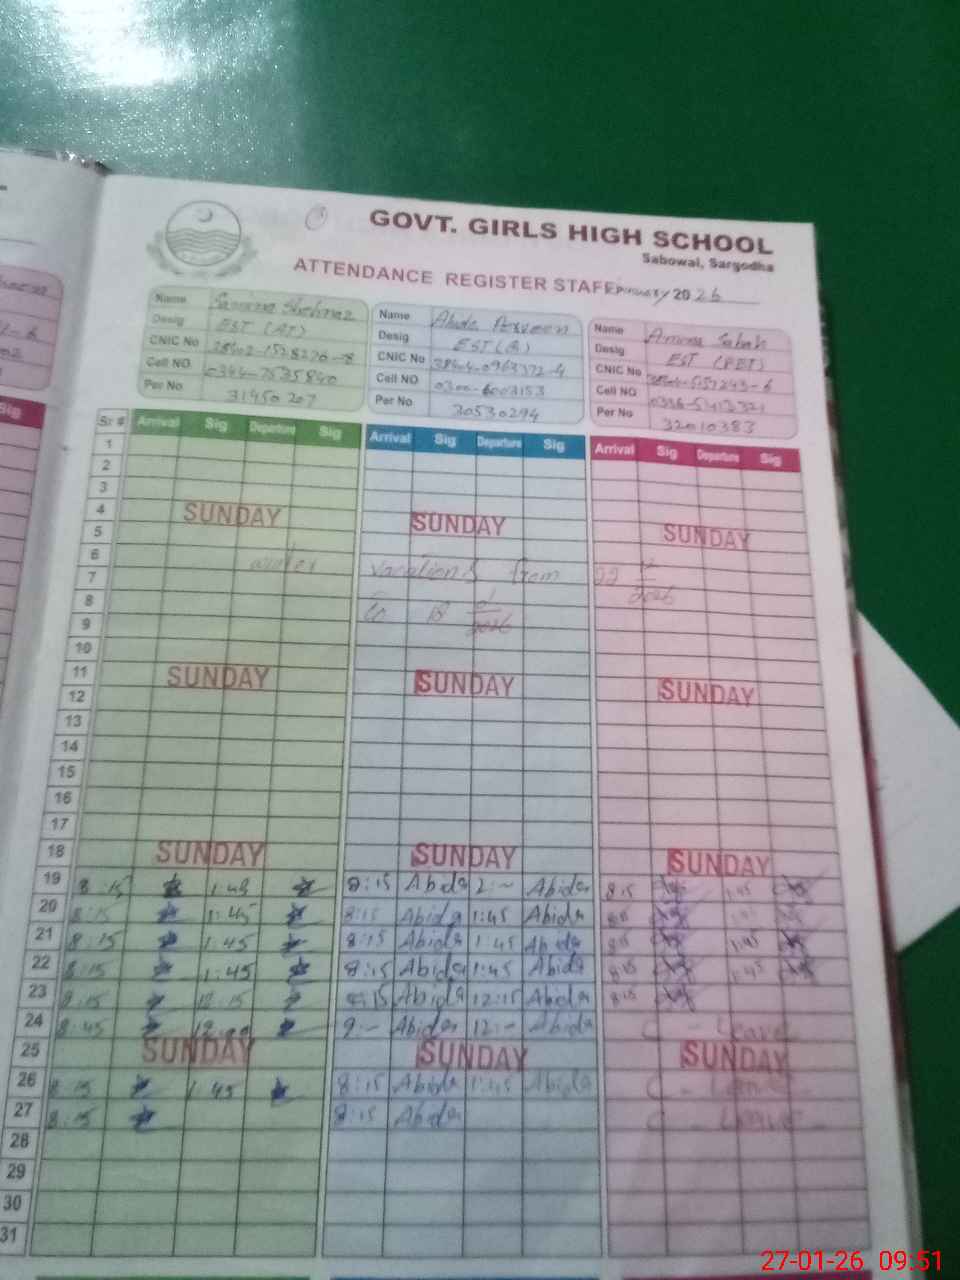 GOVT. GIRLS HIGH SCHOOL
Sabowal, Sargodha
ATTENDANCE REGISTER STAFF January 2026
Name Samina Shehnaz
Desig EST (AT)
CNIC No
Cell NO
Per No 31450207
Name Abida Perveen
Desig EST (A)
CNIC No 38404-0963372-4
Cell NO 0300-6003153
Per No 30530294
Name Amna Sabah
Desig EST (PET)
CNIC No
Cell NO
Per No 32010383
Sr # Arrival Sig Departure Sig Arrival Sig Departure Sig Arrival Sig Departure Sig
1
2
3
4 SUNDAY SUNDAY SUNDAY
5
6 winter vacations from 22 12
7 to 18 1
8 2026
9
10
11 SUNDAY SUNDAY SUNDAY
12
13
14
15
16
17
18 SUNDAY SUNDAY SUNDAY
19 8:15 1:45 8:15 Abida 2:- Abida 8:15 1:45
20 8:15 1:45 8:15 Abida 1:45 Abida 8:15 1:45
21 8:15 1:45 8:15 Abida 1:45 Abida 8:15 1:45
22 8:15 1:45 8:15 Abida 1:45 Abida 8:15 1:45
23 8:15 12:15 8:15 Abida 12:15 Abida 8:15
24 8:45 12:00 9:- Abida 12:- Abida C - Leave
25 SUNDAY SUNDAY SUNDAY
26 8:15 1:45 8:15 Abida 1:45 Abida C - Leave
27 8:15 8:15 Abida C - Leave -
28
29
30
31
27-01-26 09:51